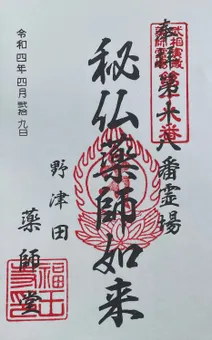 奉拝 第十八番霊場
秘仏薬師如来
野津田
薬師堂
令和四年四月弐拾九日